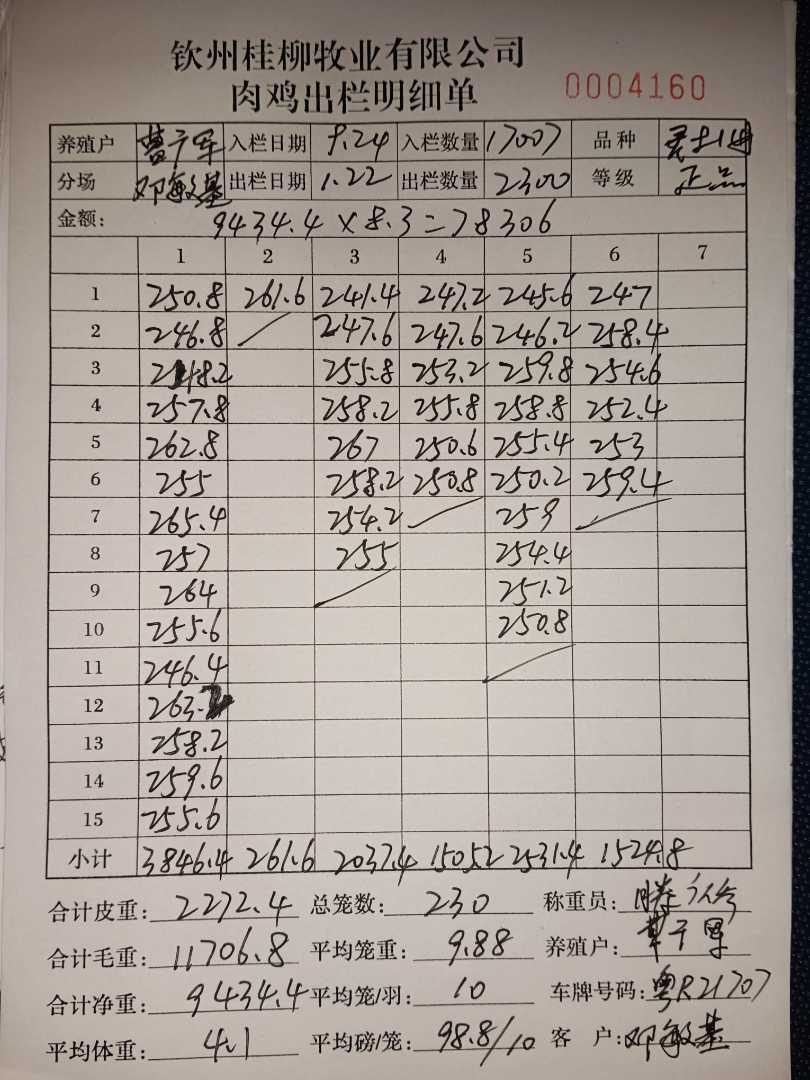 钦州桂柳牧业有限公司
肉鸡出栏明细单 0004160
养殖户 入栏日期 9.24 入栏数量 17007 品种
分场 邓敏基 出栏日期 1.22 出栏数量 2300 等级 正品
金额: 9434.4 × 8.3 = 78306
1 2 3 4 5 6 7
1 250.8 261.6 241.4 247.2 245.6 247
2 246.8 247.6 247.6 246.2 258.4
3 248.2 255.8 253.2 259.8 254.6
4 257.8 258.2 255.8 258.8 252.4
5 262.8 267 250.6 255.4 253
6 255 258.2 250.8 250.2 259.4
7 265.4 254.2 259
8 257 255 254.4
9 264 251.2
10 255.6 250.8
11 246.4
12 263.2
13 258.2
14 259.6
15 255.6
小计 3846.4 261.6 2037.4 1505.2 2531.4 1524.8
合计皮重: 2272.4 总笼数: 230 称重员:
合计毛重: 11706.8 平均笼重: 9.88 养殖户:
合计净重: 9434.4 平均笼/羽: 10 车牌号码: 粤R21707
平均体重: 4.1 平均磅/笼: 98.8/10 客 户: 邓敏基